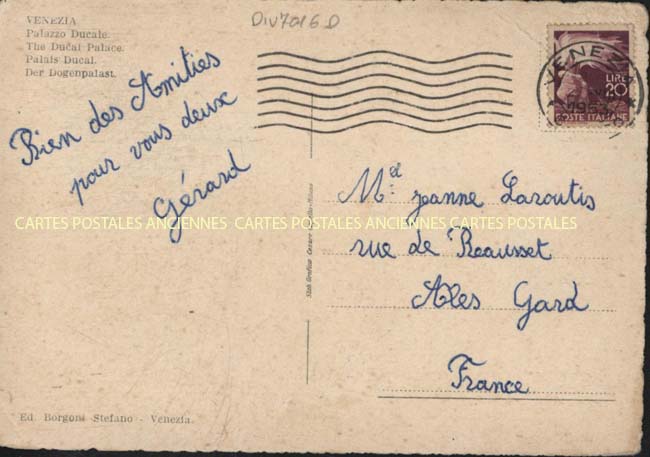 VENEZIA
Palazzo Ducale.
The Dučal Palace.
Palais Ducal.
Der Dogenpalast.
Div7016 D
VENEZIA
LIRE
20
POSTE ITALIANE
Bien des Amitiés
pour vous deux
Gérard
Md. Jeanne Laroutis
rue de Beausset
Ales Gard
France
CARTES POSTALES ANCIENNES CARTES POSTALES ANCIENNES CARTES POSTALES
Ed. Borgoni Stefano - Venezia.